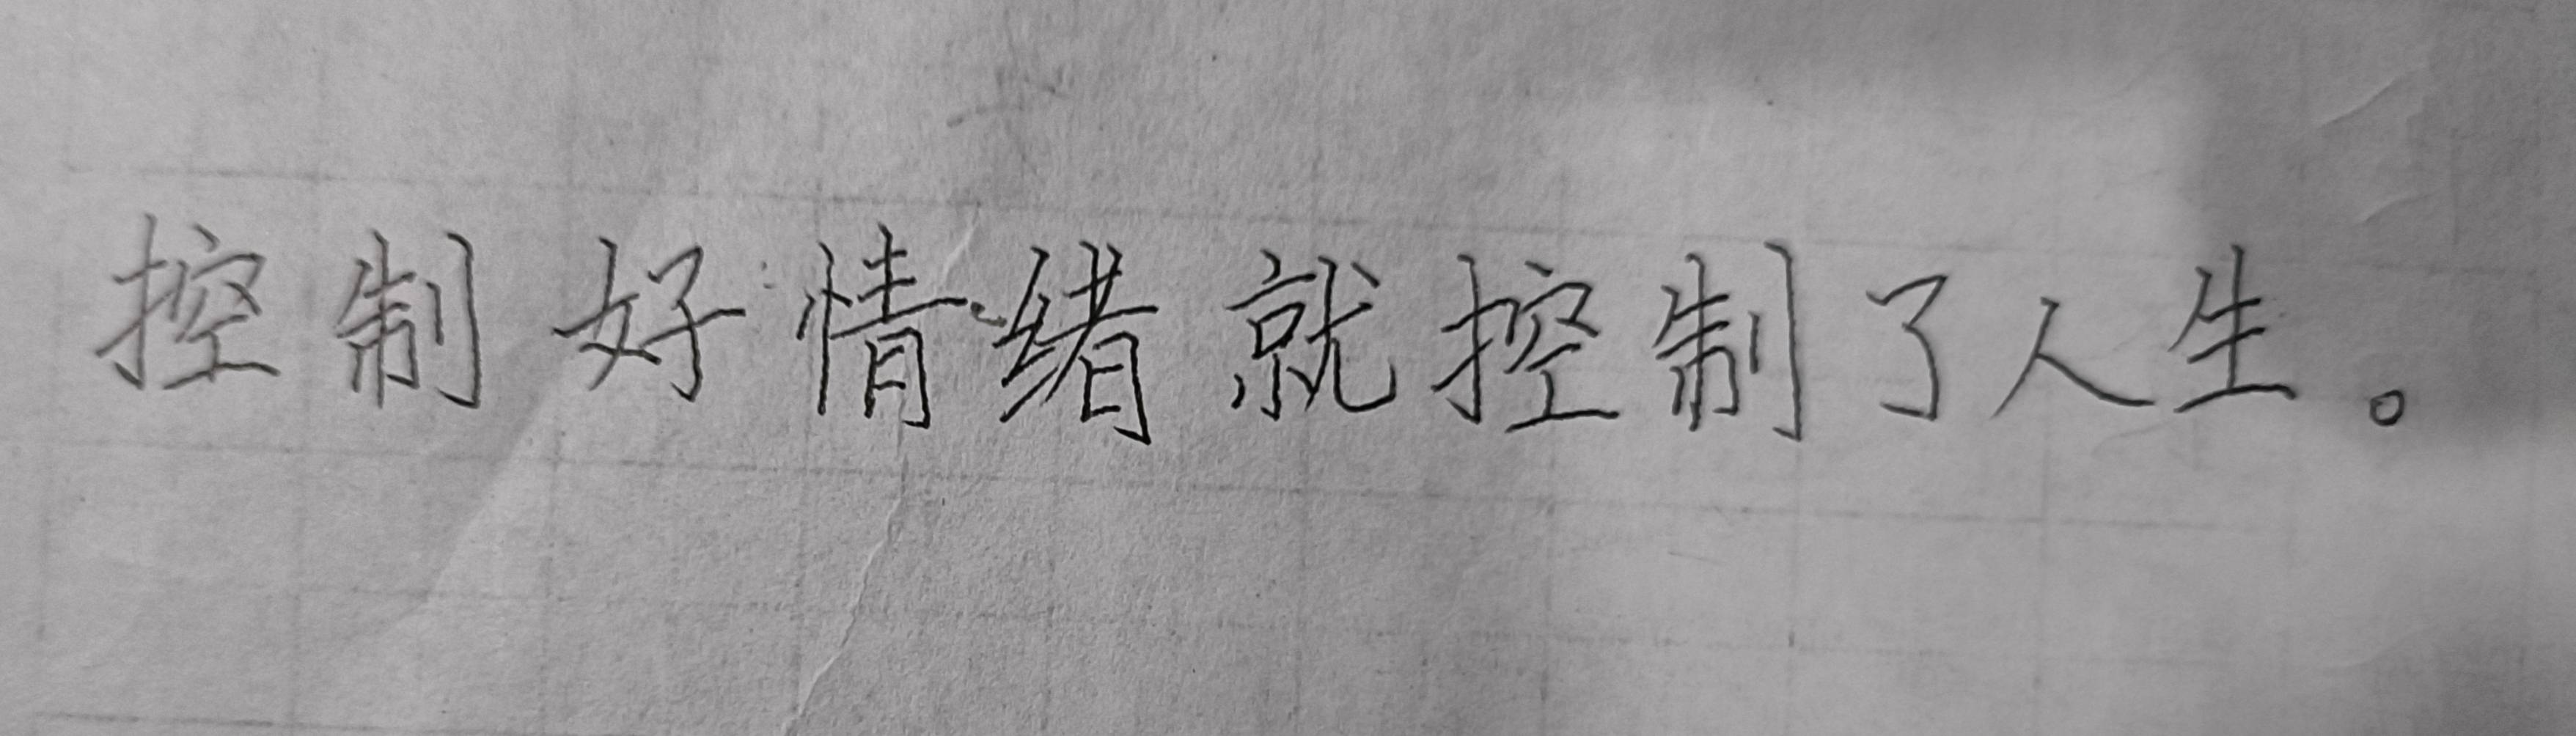 控制好情绪就控制了人生。